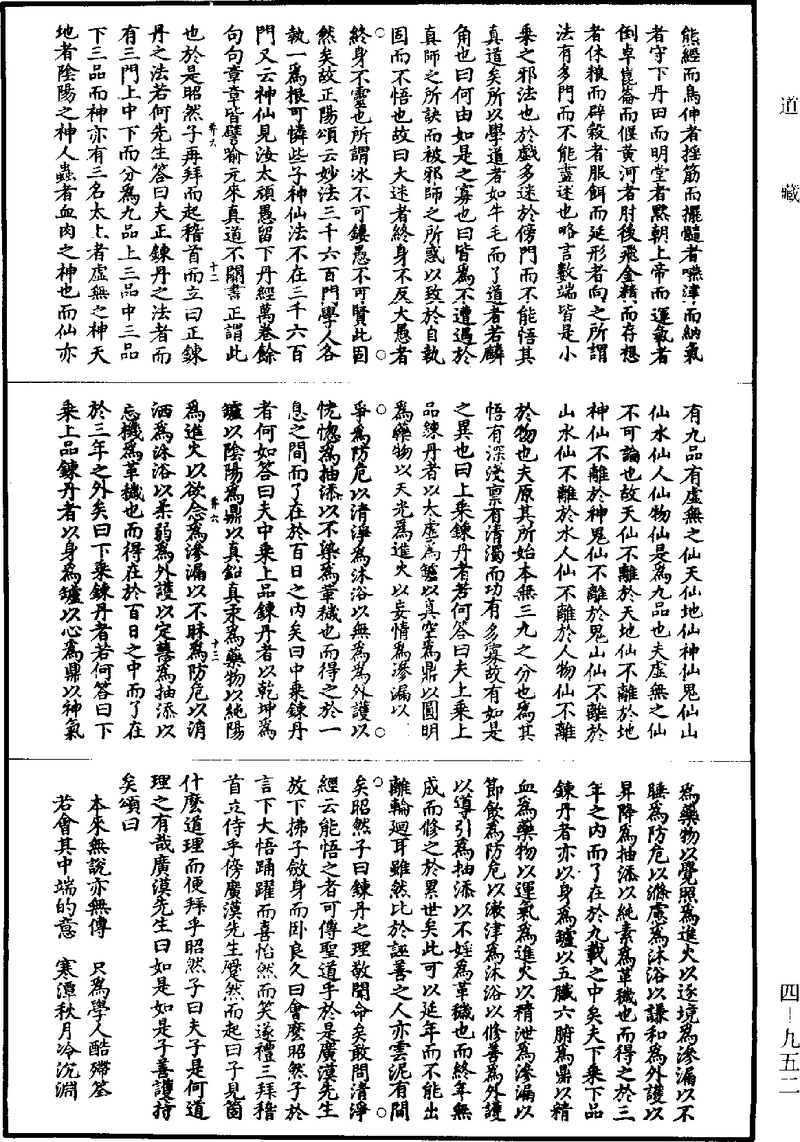 道藏
熊經而鳥伸者挃筋而擺髓者嚥津而納氣
者守下丹田而明堂者點朝上帝而運氣者
倒卓崑崙而偃黃河者肘後飛金精而存想
者休粮而辟穀者服餌而延形者向之所謂
法有多門而不能盡述也略言數端皆是小
乘之邪法也於戲多迷於傍門而不能悟其
真道矣所以學道者如牛毛而了道者若麟
角也曰何由如是之寡也曰皆為不遭遇於
真師之所訣而被邪師之所惑以致於自執
固而不悟也故曰大迷者終身不反大愚者
終身不靈也所謂冰不可鏤愚不可賢此固
然矣故正陽頌云妙法三千六百門學人各
執一為根可憐些子神仙法不在三千六百
門又云神仙見汝太頑愚留下丹經萬卷餘
句句章章皆譬喻元來真道不關書正謂此
弄六 十二
也於是昭然子再拜而起稽首而立曰正鍊
丹之法若何先生答曰夫正鍊丹之法者而
有三門上中下而分為九品上三品中三品
下三品而神亦有三名太上者虛無之神天
地者陰陽之神人蟲者血肉之神也而仙亦
有九品有虛無之仙天仙地仙神仙鬼仙山
仙水仙人仙物仙是為九品也夫虛無之仙
不可論也故天仙不離於天地仙不離於地
神仙不離於神鬼仙不離於鬼山仙不離於
山水仙不離於水人仙不離於人物仙不離
於物也夫原其所始本無三九之分也為其
悟有深淺禀有清濁而功有多寡故有如是
之異也曰上乘鍊丹者若何答曰夫上乘上
品鍊丹者以太虛為鑪以真空為鼎以圓明
為藥物以天光為進火以妄情為滲漏以
爭為防危以清淨為沐浴以無為為外護以
恍惚為抽添以不染為葷穢也而得之於一
息之間而了在於百日之內矣曰中乘鍊丹
者何如答曰夫中乘上品鍊丹者以乾坤為
鑪以陰陽為鼎以真鉛真汞為藥物以純陽
弄六 十三
為進火以欲念為滲漏以不昧為防危以消
洒為沐浴以柔弱為外護以定慧為抽添以
忘機為葷穢也而得在於百日之中而了在
於三年之外矣曰下乘鍊丹者若何答曰下
乘上品鍊丹者以身為鑪以心為鼎以神氣
為藥物以覺照為進火以逐境為滲漏以不
睡為防危以滌慮為沐浴以謙和為外護以
昇降為抽添以純素為葷穢也而得之於三
年之內而了在於九載之中矣夫下乘下品
鍊丹者亦以身為鑪以五臟六腑為鼎以精
血為藥物以運氣為進火以精泄為滲漏以
節飲為防危以潄津為沐浴以修善為外護
以導引為抽添以不婬為葷穢也而終年無
成而修之於累世矣此可以延年而不能出
離輪廻耳雖然比於誣善之人亦雲泥有間
矣昭然子曰鍊丹之理敬聞命矣敢問清淨
經云能悟之者可傳聖道乎於是廣漠先生
放下拂子斂身而卧良久曰會麼昭然子於
言下大悟踊躍而喜怡然而笑遂禮三拜稽
首立侍乎傍廣漠先生蹙然而起曰子見箇
什麼道理而便拜乎昭然子曰夫子是何道
理之有哉廣漠先生曰如是如是子善護持
矣頌曰
本來無說亦無傳 只為學人酷滯筌
若會其中端的意 寒潭秋月冷沉淵
四—九五二